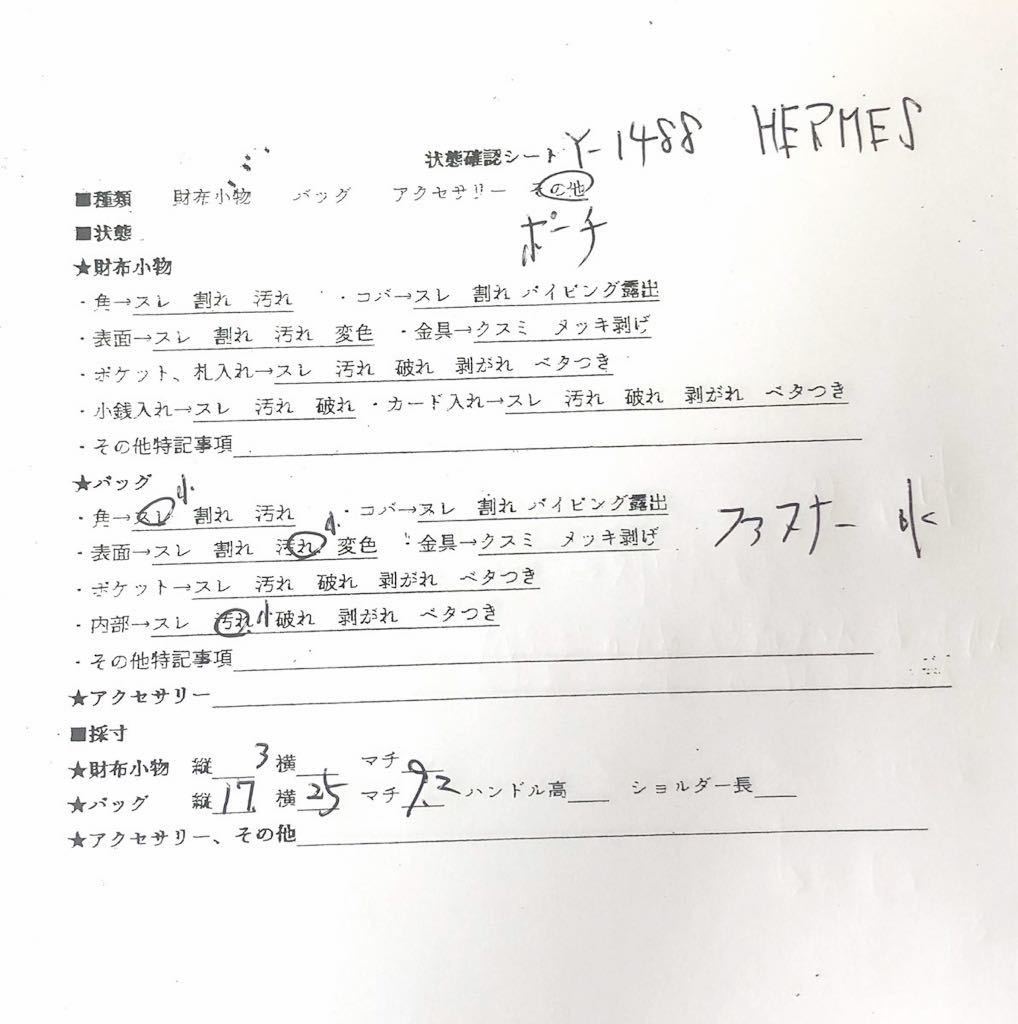 状態確認シート Y-1488 HERMES
■種類 財布小物 バッグ アクセサリー その他
ポーチ
■状態
★財布小物
・角→スレ 割れ 汚れ ・コバ→スレ 割れ パイピング露出
・表面→スレ 割れ 汚れ 変色 ・金具→クスミ メッキ剥げ
・ポケット、札入れ→スレ 汚れ 破れ 剥がれ ベタつき
・小銭入れ→スレ 汚れ 破れ ・カード入れ→スレ 汚れ 破れ 剥がれ ベタつき
・その他特記事項
★バッグ
・角→スレ小 割れ 汚れ ・コバ→スレ 割れ パイピング露出
・表面→スレ 割れ 汚れ小 変色 ・金具→クスミ メッキ剥げ
ファスナー
・ポケット→スレ 汚れ 破れ 剥がれ ベタつき
・内部→スレ 汚れ小 破れ 剥がれ ベタつき
・その他特記事項
★アクセサリー
■採寸
★財布小物 縦 3 横 マチ
★バッグ 縦 17 横 25 マチ 9.2 ハンドル高 ショルダー長
★アクセサリー、その他